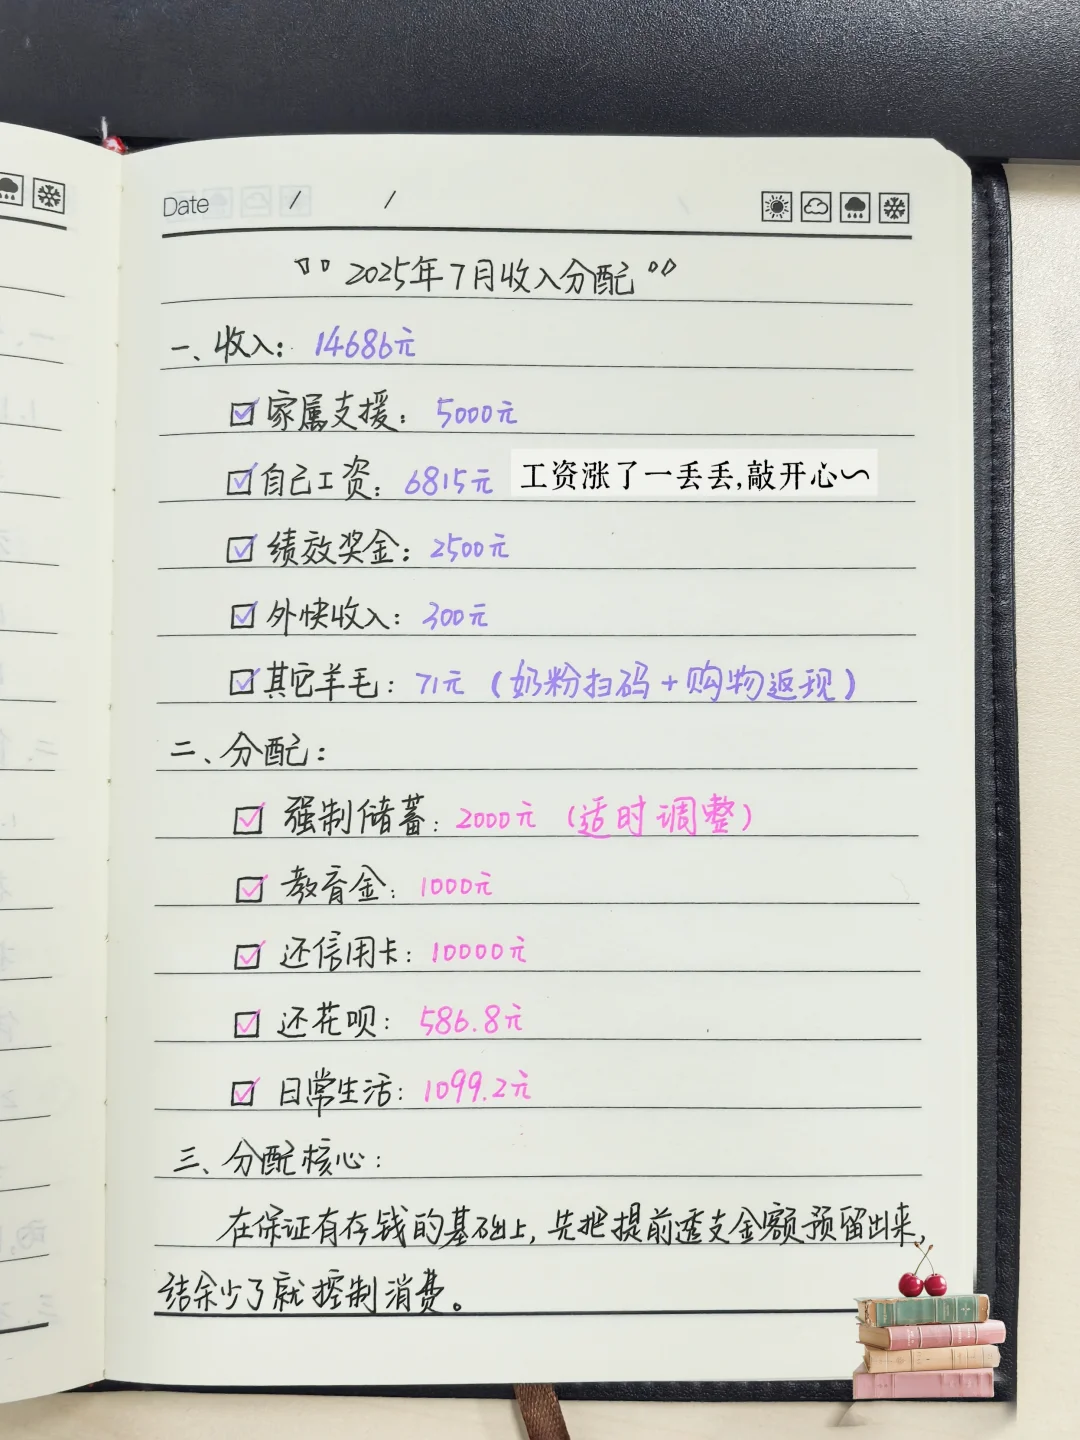 Date / /
2025年7月收入分配
一、收入：14686元
家属支援：5000元
自己工资：6815元 工资涨了一丢丢,敲开心～
绩效奖金：2500元
外快收入：300元
其它羊毛：71元（奶粉扫码+购物返现）
二、分配：
强制储蓄：2000元（适时调整）
教育金：1000元
还信用卡：10000元
还花呗：586.8元
日常生活：1099.2元
三、分配核心：
在保证有存钱的基础上,先把提前透支金额预留出来,
结余少了就控制消费。